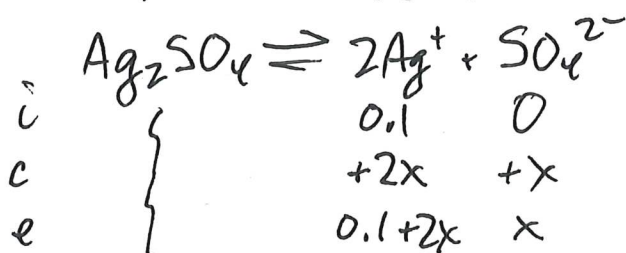 Ag₂SO₄ ⇌ 2Ag⁺ + SO₄²⁻
i 0.1 0
c +2x +x
e 0.1+2x x